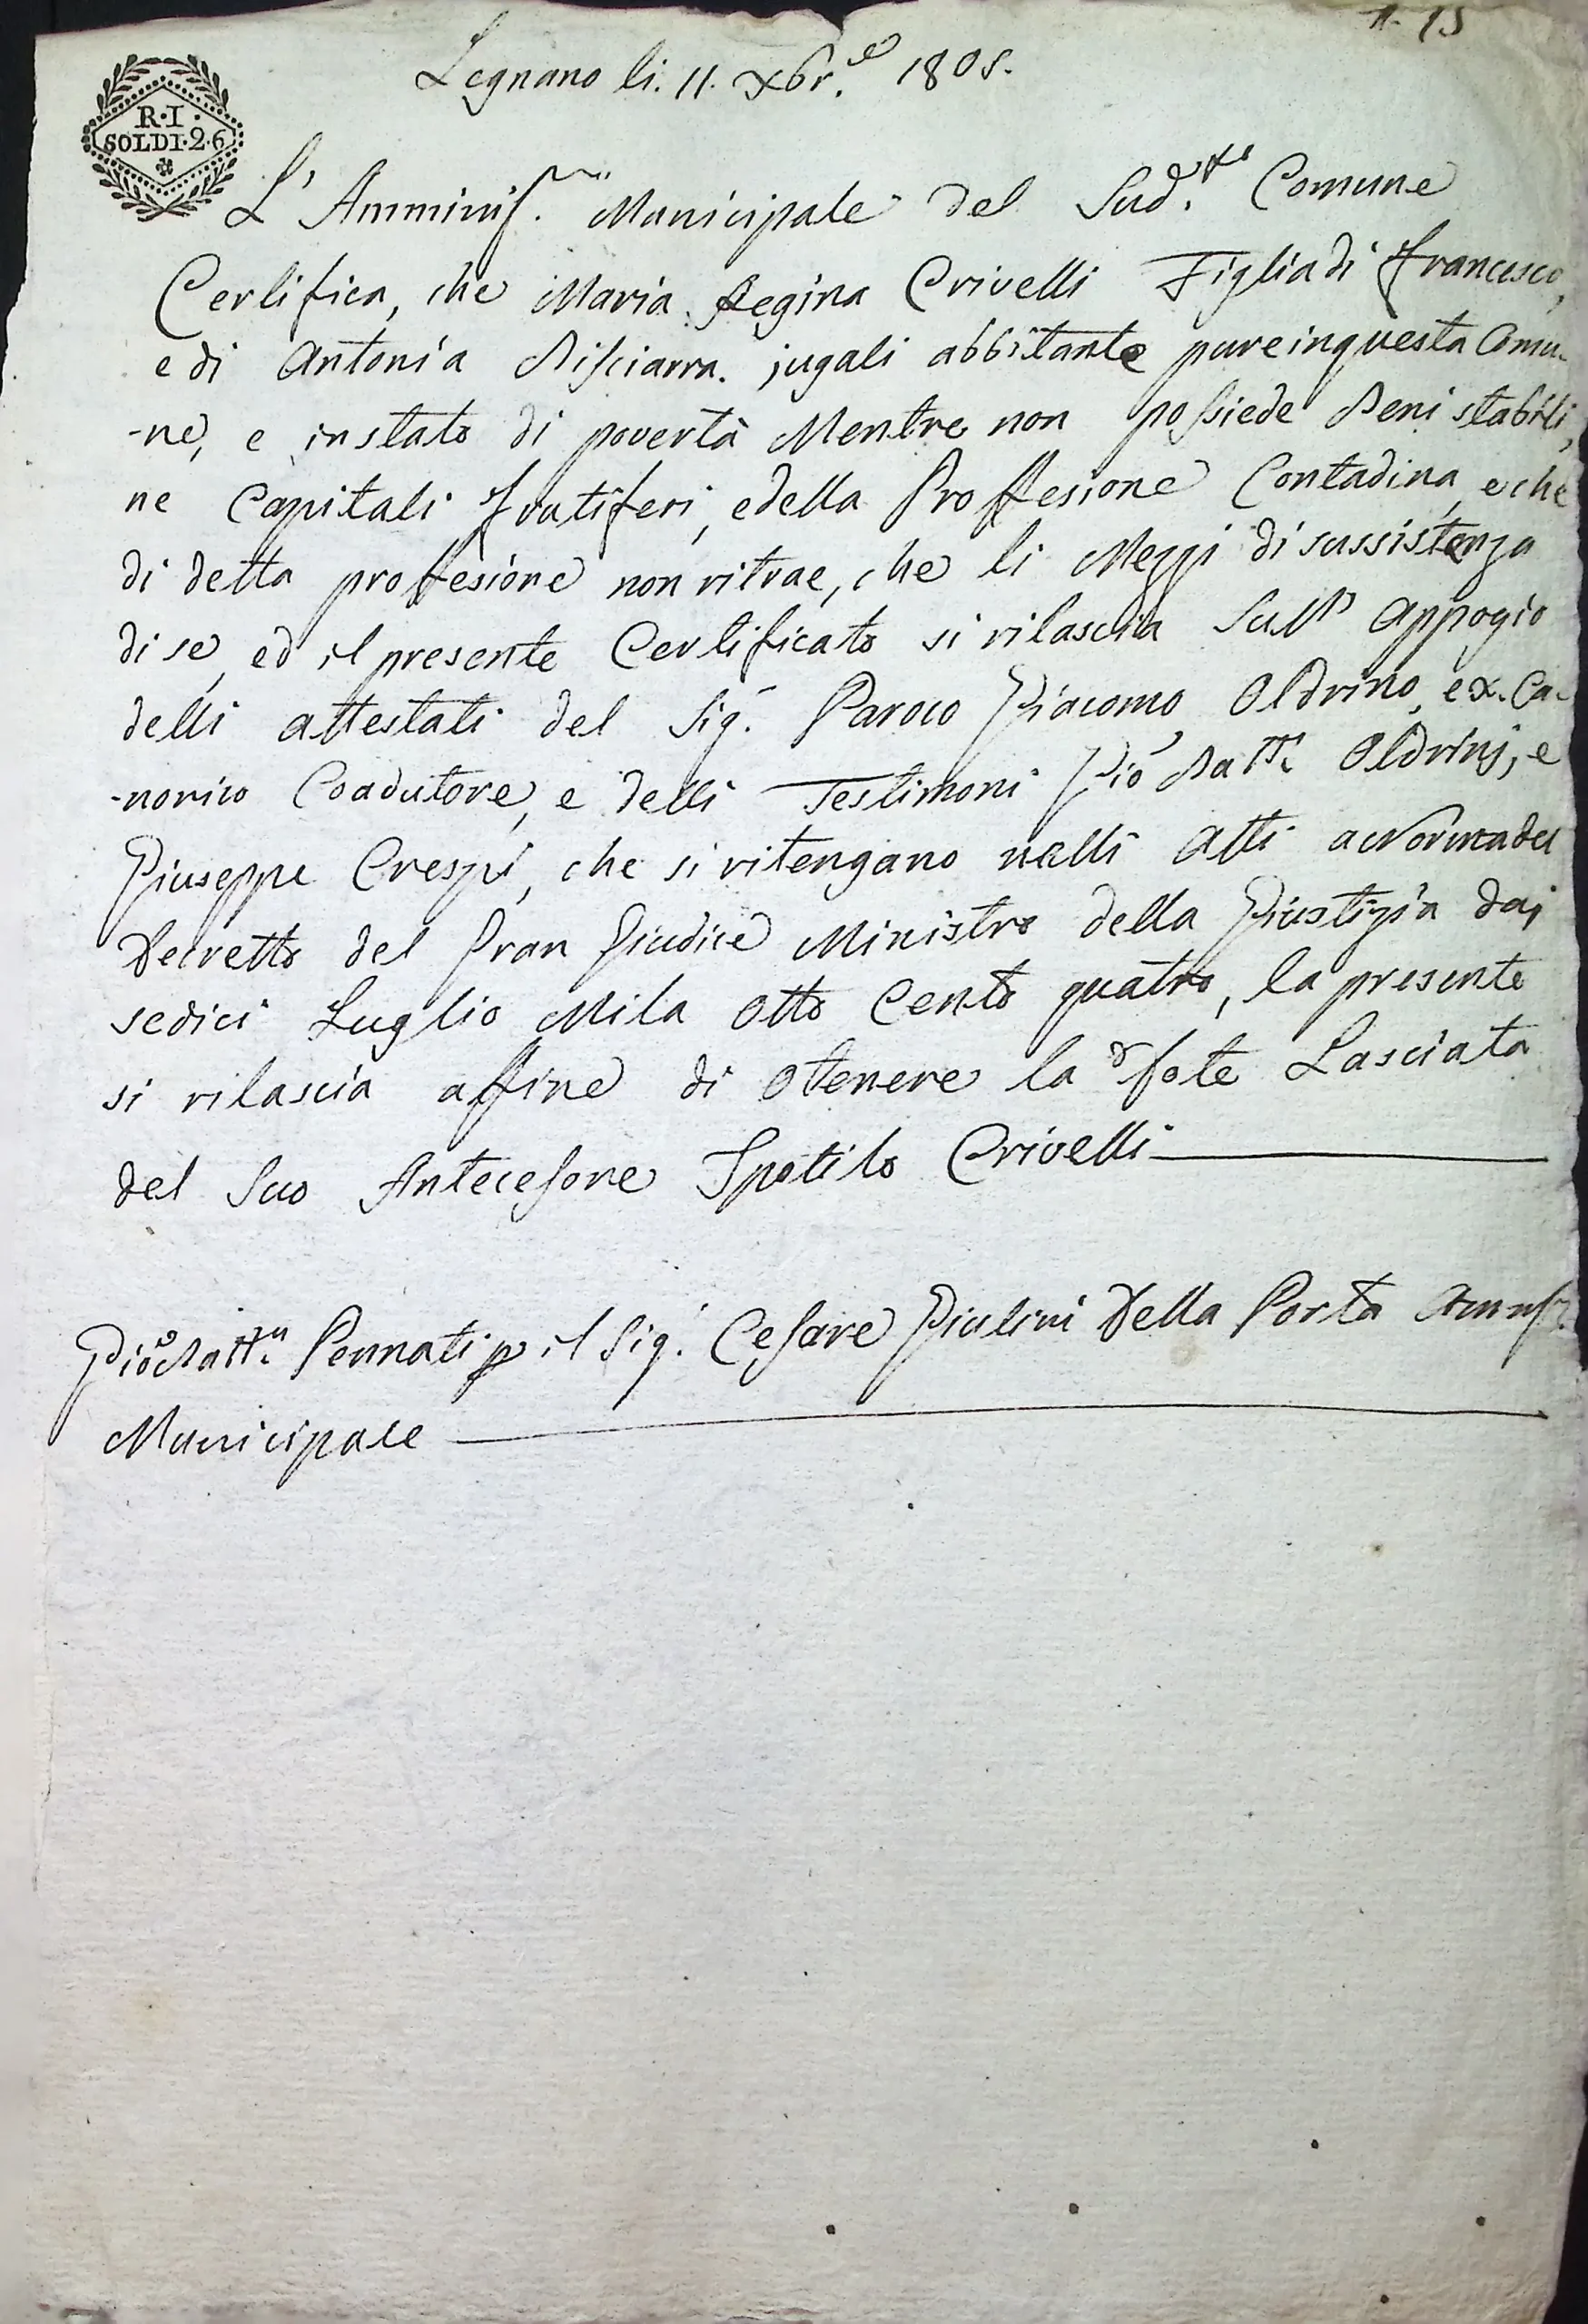 N. 15
Legnano li. 11. Xbr.e 1805.
R·I·
SOLDI·2·6
L' Amminis. Municipale del Sud.to Comune
Certifica, che Maria Regina Crivelli Figlia di Francesco,
e di Antonia Bisciarra. jugali abbitante pure in questa Comu-
-ne, e in stato di povertà Mentre non possiede Beni stabili,
ne Capitali Frutiferi, e della Proffesione Contadina, e che
di detta proffesione non ritrae, che li Mezzi di sussistenza
di se, ed il presente Certificato si rilascia Sull' appogio
delli attestati del Sig.r Paroco Giacomo Oldrino, ex. Ca-
-nonico Coadutore, e delli Testimoni Gio Batt.a Oldrinj, e
Giuseppe Crespi, che si ritengano nelli Atti a Norma del
Decretto del Gran Giudice Ministro della Giustizia dai
sedici Luglio Mila Otto Cento quatro, la presente
si rilascia affine di Otenere la dote Lasciata
del Suo Antecesore Spotilo Crivelli
Gio Batt.a Pennati p il Sig.r Cesare Giulini Della Porta
Municipale